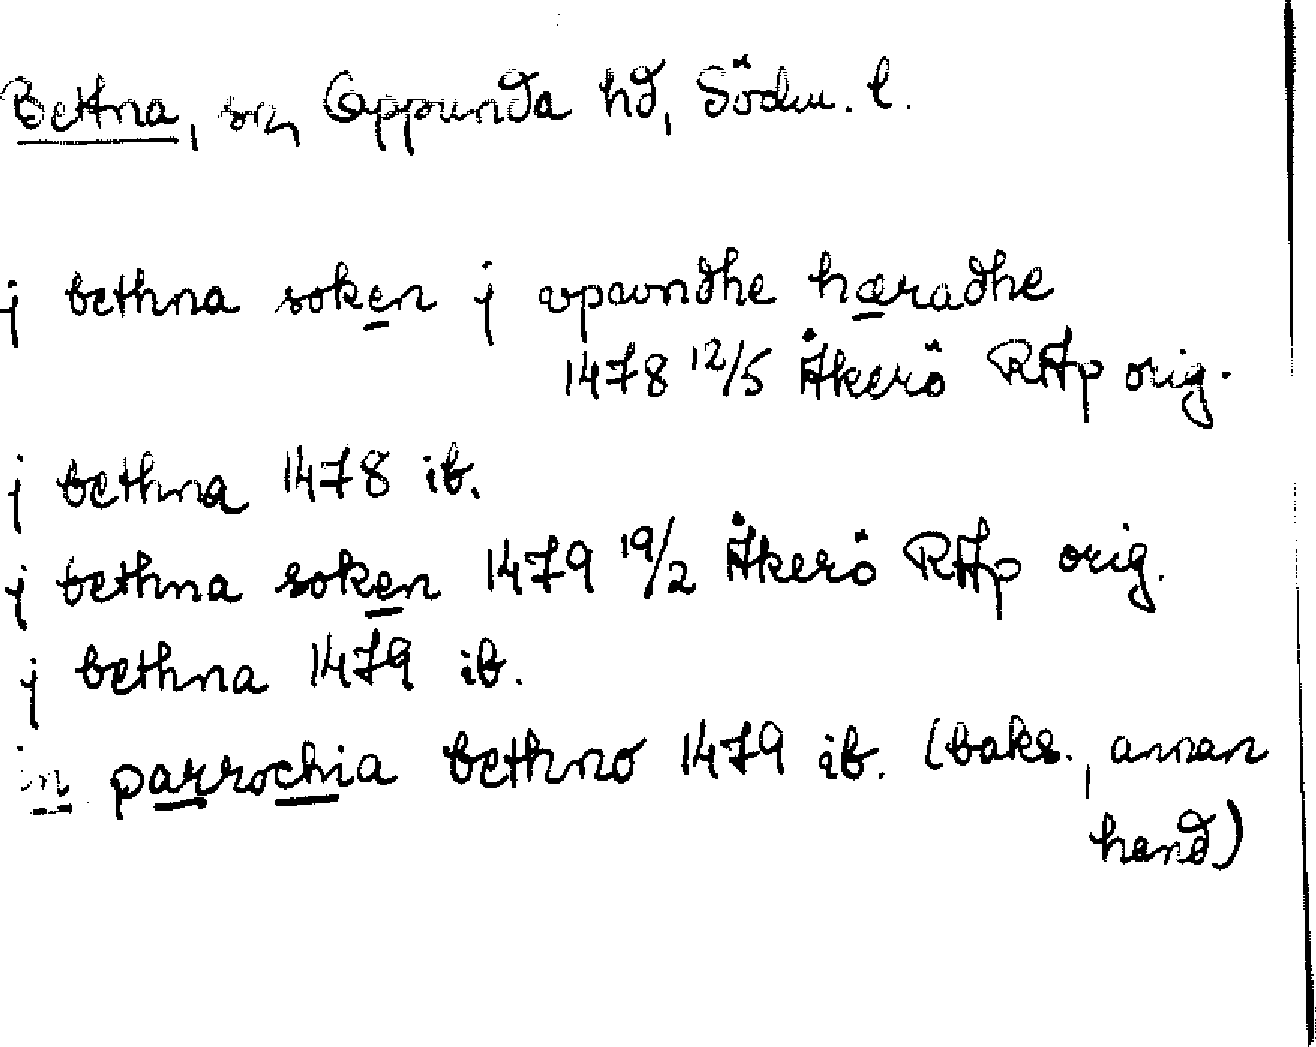 Bettna, sn, Oppunda hd, Södm. l.
j bethna soken j vpavndhe hæradhe
1478 12/5 Åkerö RAp orig.
j bethna 1478 ib.
j bethna soken 1479 19/2 Åkerö RAp orig.
j bethna 1479 ib.
in parrochia bethno 1479 ib. (baks., annan
hand)